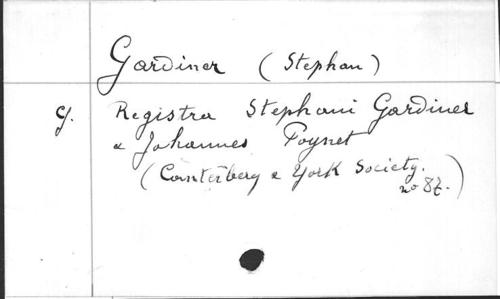 Gardiner (Stephan)
Cf. Registra Stephani Gardiner
& Johannes Poynet
(Canterbery & York Society.
no 87.)